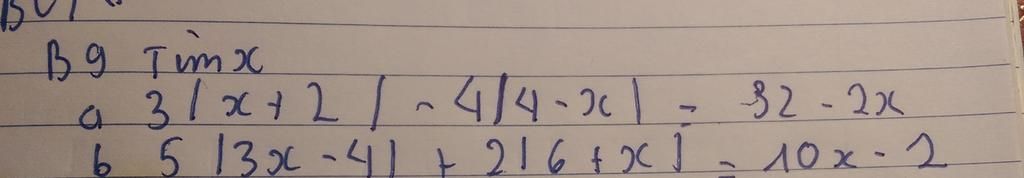 B9 Tìm x
a 3|x+2| - 4|4-x| = 32 - 2x
b 5|3x-4| + 2|6+x| = 10x - 2